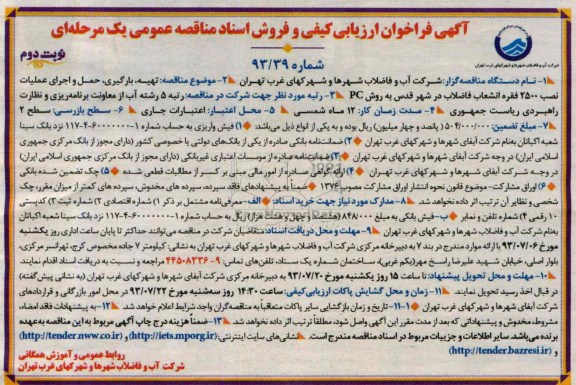 آگهی فراخوان ارزیابی کیفی و فروش اسناد مناقصه عمومی یک مرحله‌ای
شماره ۹۳/۳۹
نوبت دوم
شرکت آب و فاضلاب شهرها و شهرکهای غرب تهران
۱- نام دستگاه مناقصه‌گزار: شرکت آب و فاضلاب شهرها و شهرکهای غرب تهران ۲- موضوع مناقصه: تهیه، بارگیری، حمل و اجرای عملیات
نصب ۲۵۰۰ فقره انشعاب فاضلاب در شهر قدس به روش PC ۳- رتبه مورد نظر جهت شرکت در مناقصه: رتبه ۵ رشته آب از معاونت برنامه‌ریزی و نظارت
راهبردی ریاست جمهوری ۴- مدت زمان کار: ۱۲ ماه شمسی ۵- محل اعتبار: اعتبارات جاری ۶- سطح بازرسی: سطح ۲
۷- مبلغ تضمین: ۵۰۴/۰۰۰/۰۰۰ (پانصد و چهار میلیون) ریال بوده و به یکی از انواع ذیل می‌باشد: ۱) فیش واریزی به حساب شماره ۱-۶۰۰۰۰۰۰-۴-۱۱۷ نزد بانک سینا
شعبه اکباتان به‌نام شرکت آبفای شهرها و شهرکهای غرب تهران ۲) ضمانت‌نامه بانکی صادره از یکی از بانک‌های دولتی یا خصوصی کشور (دارای مجوز از بانک مرکزی جمهوری
اسلامی ایران) در وجه شرکت آبفای شهرها و شهرکهای غرب تهران ۳) ضمانت‌نامه صادره از موسسات اعتباری غیربانکی (دارای مجوز از بانک مرکزی جمهوری اسلامی ایران)
در وجه شرکت آبفای شهرها و شهرکهای غرب تهران ۴) ارائه گواهی صادره از امور مالی مبنی بر کسر از مطالبات قطعی شده ۵) چک تضمین شده بانکی
۶) اوراق مشارکت- موضوع قانون نحوه انتشار اوراق مشارکت مصوب ۱۳۷۶ ضمناً به پیشنهادهای فاقد سپرده، سپرده های مخدوش، سپرده های کمتر از میزان مقرر، چک
شخصی و نظایر آن ترتیب اثر داده نخواهد شد. ۸- مدارک مورد نیاز جهت خرید اسناد: الف- معرفی‌نامه مشتمل بر ذکر ۱) شماره اقتصادی ۲) شماره ثبت ۳) کدپستی
۱۰ رقمی ۴) شماره تلفن و نمابر ب- فیش بانکی به مبلغ ۸۴۸/۰۰۰ (هشتصد و چهل و هشت هزار) ریال به حساب شماره ۱-۶۰۰۰۰۰۰-۴-۱۱۷ نزد بانک سینا شعبه اکباتان
به‌نام شرکت آب و فاضلاب شهرها و شهرکهای غرب تهران ۹- مهلت و محل دریافت اسناد: متقاضیان شرکت در مناقصه می‌توانند حداکثر تا پایان ساعت اداری روز یکشنبه
مورخ ۹۳/۰۷/۰۶ با ارائه موارد مندرج در بند ۷ به دبیرخانه مرکزی شرکت آب و فاضلاب شهرها و شهرکهای غرب تهران به نشانی: کیلومتر ۷ جاده مخصوص کرج، تهرانسر مرکزی،
بلوار اصلی، خیابان شهید علیرضا راسخ مهر(یکم غربی)، ساختمان شماره یک ستاد، تلفن‌های تماس: ۹-۴۴۵۰۸۳۳۶ مراجعه و نسبت به دریافت اسناد اقدام نمایند.
۱۰- مهلت و محل تحویل پیشنهاد: تا ساعت ۱۵ روز یکشنبه مورخ ۹۳/۰۷/۲۰ به دبیرخانه مرکزی شرکت آبفای شهرها و شهرکهای غرب تهران (به نشانی پیش‌گفته)
در قبال اخذ رسید تحویل نمایند. ۱۱- زمان و محل گشایش پاکات ارزیابی کیفی: ساعت ۱۴:۳۰ روز سه‌شنبه مورخ ۹۳/۷/۲۲ در محل امور بازرگانی و قراردادهای
شرکت آبفای شهرها و شهرکهای غرب تهران ۱-۱۱- تاریخ و زمان بازگشایی سایر پاکات متعاقباً به مناقصه‌گران واجد شرایط اعلام خواهد شد. ۱۲- به پیشنهادات فاقد امضاء،
مشروط، مخدوش و پیشنهاداتی که بعد از مدت مقرر این آگهی واصل شود، مطلقاً ترتیب اثر داده نخواهد شد. ۱۳- ضمناً هزینه درج چاپ آگهی مربوط به این مناقصه به‌عهده
برنده می‌باشد. سایر اطلاعات و جزییات مربوط در اسناد مناقصه مندرج است. نشانی‌های سایت اینترنتی: (http://iets.mporg.ir) و (http://tender.nww.co.ir)
و (http://tender.bazresi.ir)
روابط عمومی و آموزش همگانی
شرکت آب و فاضلاب شهرها و شهرکهای غرب تهران